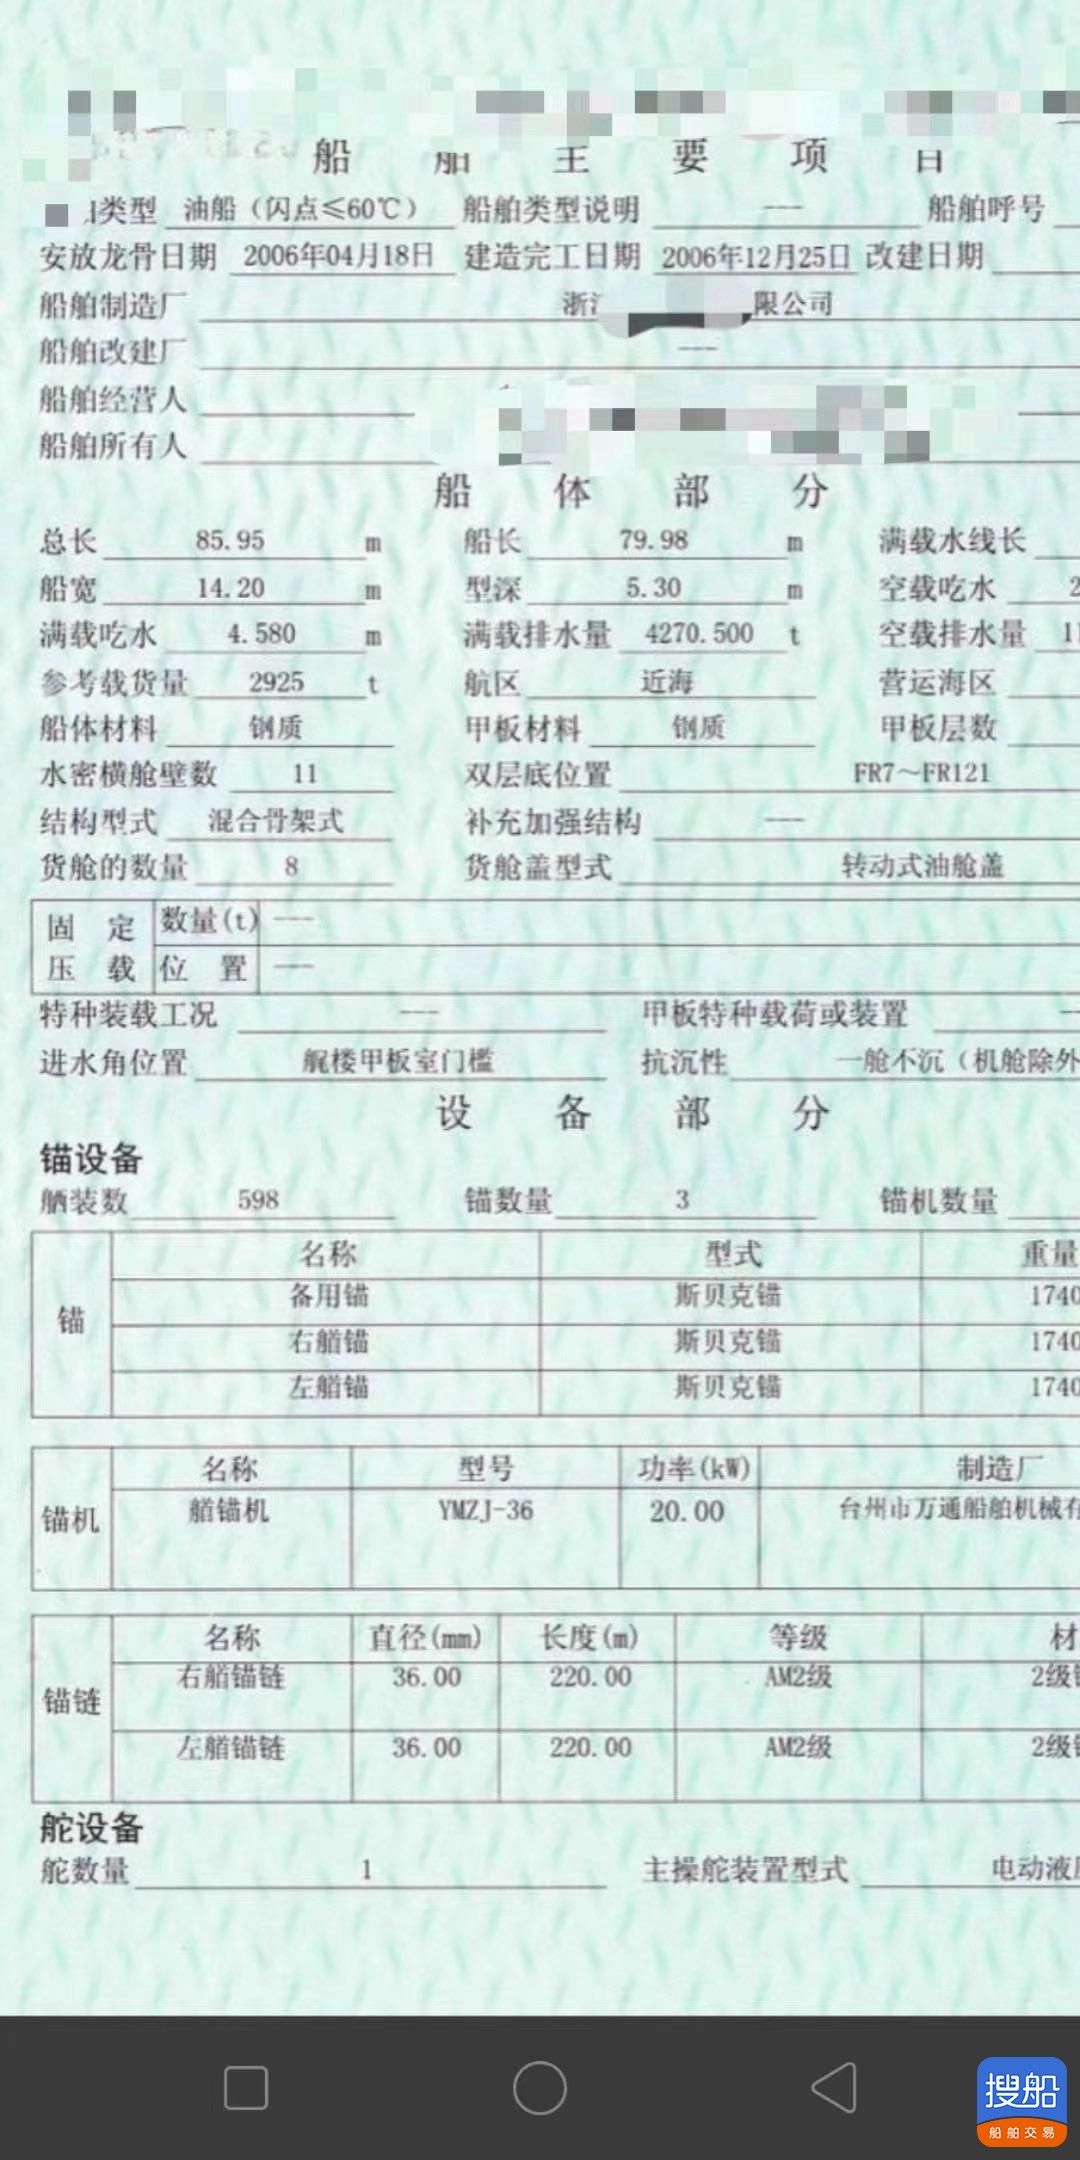 船 舶 主 要 项 目
类型 油船（闪点≤60℃） 船舶类型说明 --- 船舶呼号
安放龙骨日期 2006年04月18日 建造完工日期 2006年12月25日 改建日期
船舶制造厂 浙 限公司
船舶改建厂 ---
船舶经营人
船舶所有人
船 体 部 分
总长 85.95 m 船长 79.98 m 满载水线长
船宽 14.20 m 型深 5.30 m 空载吃水 2
满载吃水 4.580 m 满载排水量 4270.500 t 空载排水量 11
参考载货量 2925 t 航区 近海 营运海区
船体材料 钢质 甲板材料 钢质 甲板层数
水密横舱壁数 11 双层底位置 FR7～FR121
结构型式 混合骨架式 补充加强结构 ---
货舱的数量 8 货舱盖型式 转动式油舱盖
固 定 数量(t) ---
压 载 位 置 ---
特种装载工况 --- 甲板特种载荷或装置
进水角位置 艉楼甲板室门槛 抗沉性 一舱不沉（机舱除外
设 备 部 分
锚设备
舾装数 598 锚数量 3 锚机数量
名称 型式 重量
备用锚 斯贝克锚 1740
锚 右艏锚 斯贝克锚 1740
左艏锚 斯贝克锚 1740
名称 型号 功率(kW) 制造厂
锚机 艏锚机 YMZJ-36 20.00 台州市万通船舶机械有
名称 直径(mm) 长度(m) 等级 材
右艏锚链 36.00 220.00 AM2级 2级
锚链
左艏锚链 36.00 220.00 AM2级 2级
舵设备
舵数量 1 主操舵装置型式 电动液
搜船
船舶交易